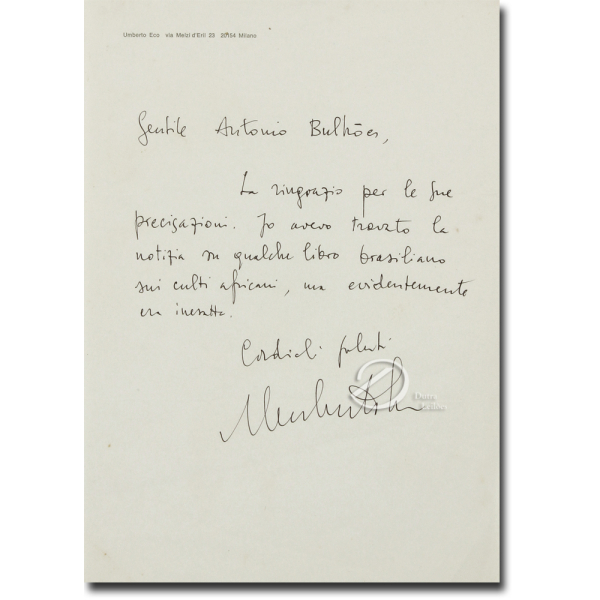 Umberto Eco via Melzi d'Eril 23 20154 Milano
Gentile Antonio Bulhões,
La ringrazio per le Sue
precisazioni. Io avevo trovato la
notizia su qualche libro brasiliano
sui culti africani, ma evidentemente
era inesatta.
Cordiali saluti
Umberto Eco
Dutra
Leilões